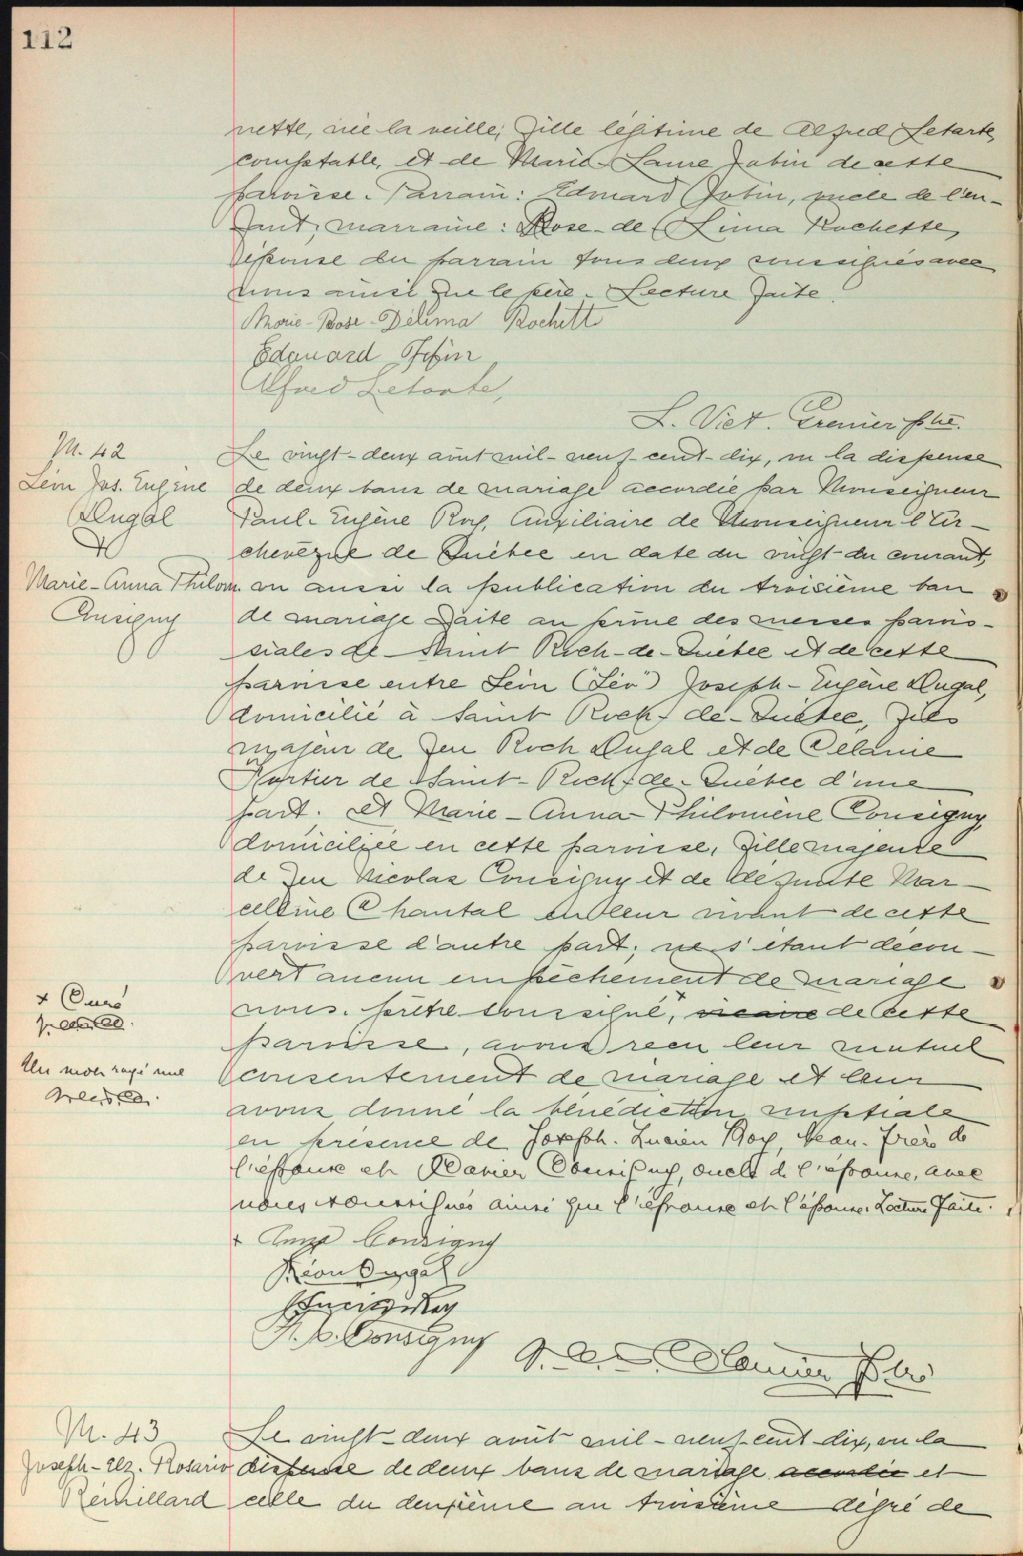 112
nette, née la veille, fille légitime de Alfred Letarte,
comptable, et de Marie-Laure Jobin de cette
paroisse. Parrain: Edouard Jobin, oncle de l'en-
fant; marraine: Rose-de-Lima Rochette,
épouse du parrain tous deux soussignés avec
nous ainsi que le père. Lecture faite.
Marie-Rose-Délima Rochette
Edouard Jobin
Alfred Letarte,
L. Vict. Grenier ptre.
M. 42
Léon Jos. Eugène
Dugal
&
Marie-Anna Philom.
Consigny
Le vingt-deux août mil-neuf-cent-dix, vu la dispense
de deux bans de mariage accordée par Monseigneur
Paul-Eugène Roy, Auxiliaire de Monseigneur l'Ar-
chevêque de Québec en date du vingt du courant,
vu aussi la publication du troisième ban
de mariage faite au prône des messes parois-
siales de Saint Roch-de-Québec et de cette
paroisse entre Léon ("Léo") Joseph-Eugène Dugal,
domicilié à Saint Roch-de-Québec, fils
majeur de feu Roch Dugal et de Célanie
Fortier de Saint-Roch-de-Québec d'une
part; et Marie-Anna-Philomène Consigny,
domiciliée en cette paroisse, fille majeure
de feu Nicolas Consigny et de défunte Mar-
celline Chantal en leur vivant de cette
paroisse d'autre part; ne s'étant décou-
vert aucun empêchement de mariage
nous, prêtre soussigné, + vicaire de cette
paroisse, avons reçu leur mutuel
consentement de mariage et leur
avons donné la bénédiction nuptiale
en présence de Joseph-Lucien Roy, beau-frère de
l'épouse et Xavier Consigny, oncle de l'épouse, avec
nous soussignés ainsi que l'époux et l'épouse. Lecture faite.
+ Curé
Un mot rayé nul
+ Anna Consigny
Léon Dugal
Lucien Roy
F. X. Consigny
ptre
M. 43
Joseph-Elz. Rosario
Rémillard
Le vingt-deux août mil-neuf-cent-dix, vu la
dispense de deux bans de mariage accordée et
celle du deuxième au troisième dégré de